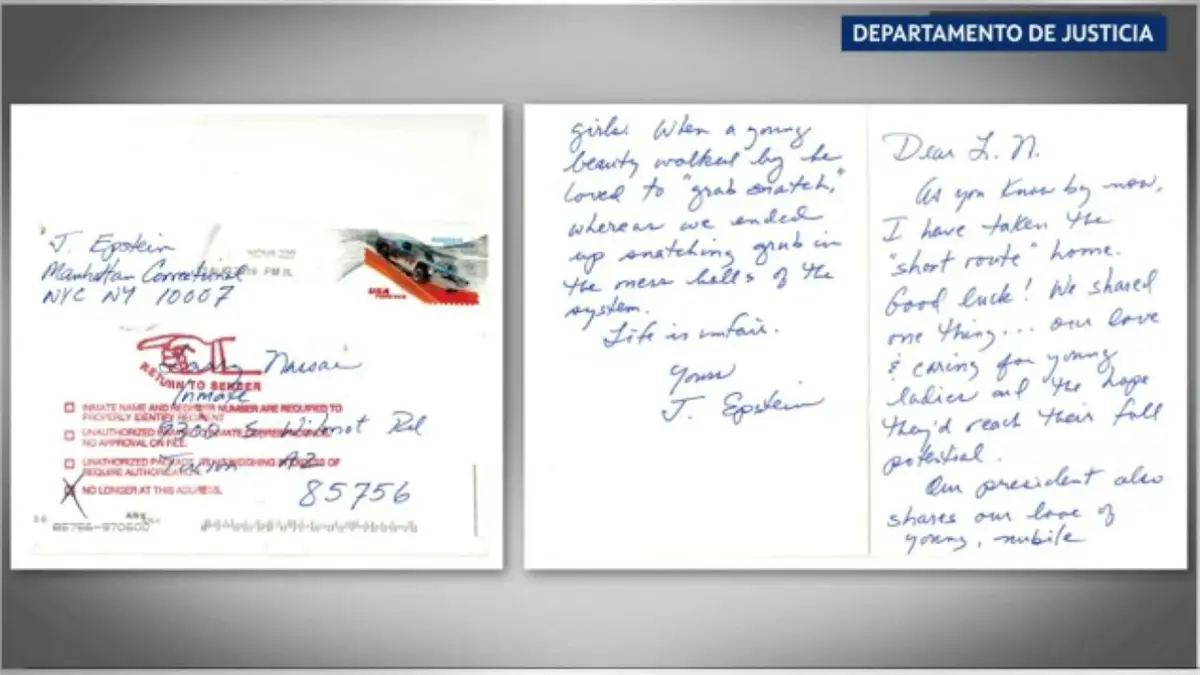 DEPARTAMENTO DE JUSTICIA
J. Epstein
Manhattan Correctional
NYC NY 10007
PM
USA
FOREVER
RETURN TO SENDER
Larry Nassar
Inmate
9300 S Wilmot Rd
Tucson AZ
85756
INMATE NAME AND REGISTER NUMBER ARE REQUIRED TO
PROPERLY IDENTIFY
UNAUTHORIZED
NO APPROVAL ON FILE.
UNAUTHORIZED
REQUIRE
NO LONGER AT THIS ADDRESS.
Dear L. N.
As you know by now,
I have taken the
"short route" home.
Good luck! We shared
one thing... our love
& caring for young
ladies and the hope
they'd reach their full
potential.
Our president also
shares our love of
young, nubile
girls. When a young
beauty walked by he
loved to "grab snatch,"
whereas we ended
up snatching grub in
the mess halls of the
system.
Life is unfair.
Yours
J. Epstein